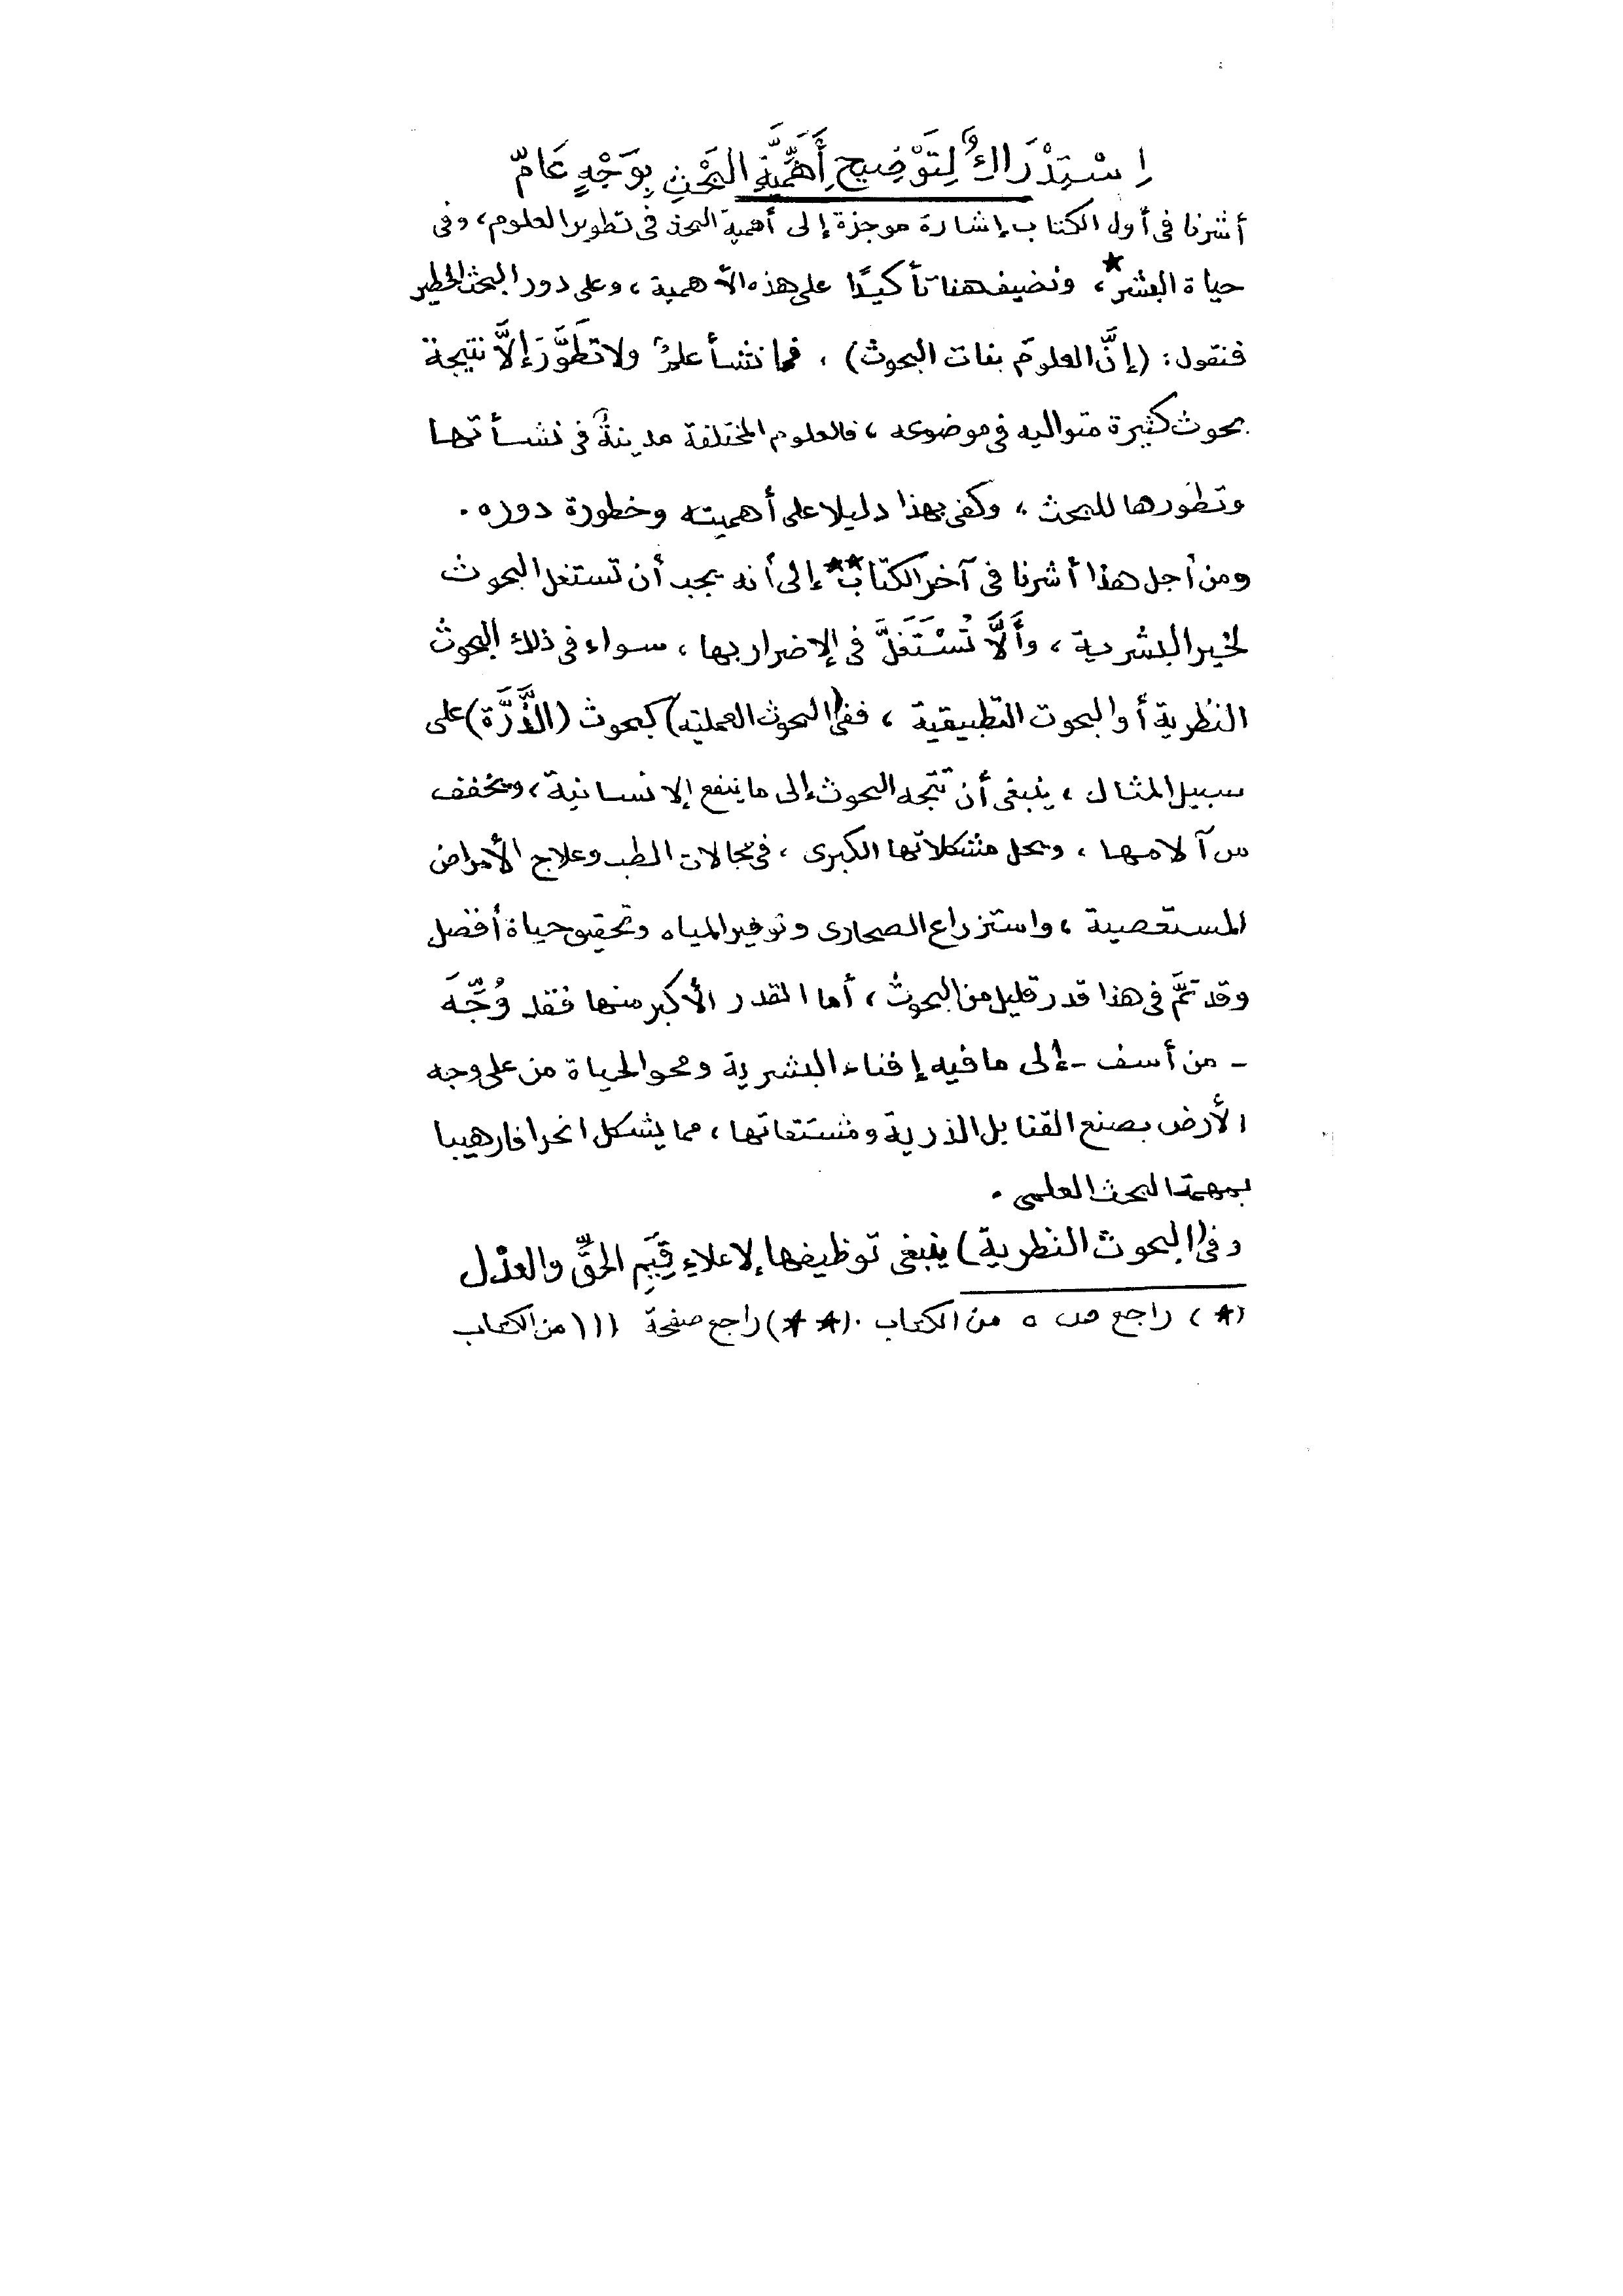 اِسْتِدْرَاكٌ لِتَوْضِيحِ أَهَمِّيَّةِ البَحْثِ بِوَجْهٍ عَامّ
أشرنا فى أول الكتاب إشارة موجزة إلى أهمية البحث فى تطوير العلوم، وفى
حياة البشر★، ونضيف هنا تأكيدًا على هذه الأهمية، وعلى دور البحث الخطير
فنقول: (إنَّ العلومَ بنات البحوث)، فما نشأ علمٌ ولا تَطَوَّرَ إلاَّ نتيجة
بحوث كثيرة متواليه فى موضوعه، فالعلوم المختلفة مدينةٌ فى نشأتها
وتطورها للبحث، وكفى بهذا دليلا على أهميته وخطورة دوره.
ومن أجل هذا أشرنا فى آخر الكتاب★★ إلى أنه يجب أن تستغل البحوث
لخير البشرية، وأَلاَّ تُسْتَغَلَّ فى الإضرار بها، سواء فى ذلك البحوث
النظرية أو البحوث التطبيقية، ففى (البحوث العملية) كبحوث (الذَّرَّة) على
سبيل المثال، ينبغى أن تتجه البحوث إلى ما ينفع الإنسانية، ويخفف
من آلامها، ويحل مشكلاتها الكبرى، فى مجالات الطب وعلاج الأمراض
المستعصية، واستزراع الصحارى وتوفير المياه وتحقيق حياة أفضل
وقد تمَّ فى هذا قدر قليل من البحوث، أما القدر الأكبر منها فقد وُجِّهَ
- من أسف - إلى ما فيه إفناء البشرية ومحو الحياة من على وجه
الأرض بصنع القنابل الذرية ومشتقاتها، مما يشكل انحرافا رهيبا
بمهمة البحث العلمى.
وفى (البحوث النظرية) ينبغى توظيفها لإعلاءِ قِيَمِ الحقِّ والعدْل
(★) راجع ص ٥ من الكتاب. (★★) راجع صفحة ١١١ من الكتاب